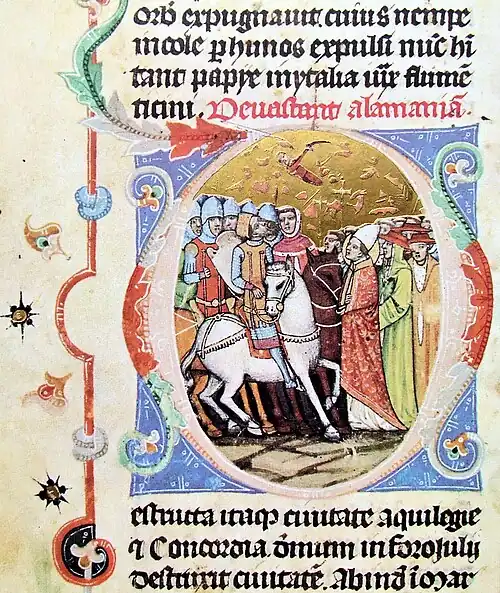 orbē expugnauit cuius nempe
incole p hunos expulsi nūc hi
tant papye in ytalia iux̄ flumē
ticini. Deuastant alamaniā.
estructa itaqꝫ ciuitate aquilegie
⁊ Concordia. ōmnm in foroiulij
destruxit ciuitatē. Abinde